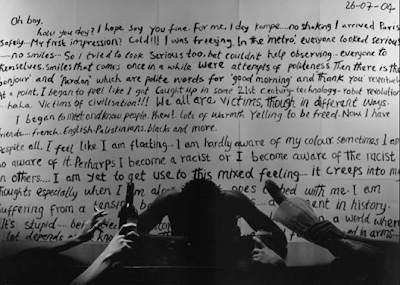 26-07-09
Oh boy,
how you dey? I hope say you fine. For me, I dey kampe... no shaking! I arrived Paris
safely. My first impression? Cold!!! I was freezing. In the metro, everyone looked serious
no smiles... So I tried to look serious too, but couldnt help observing everyone to
themselves. Smiles that comes once in a while were attempts of politeness. Then there is the
bonjour' and 'Pardon' which are polite words for 'good morning' and thank you respectively
At a point, I began to feel like I got caught up in some 21st century technology-robot revolution
-haha. Victims of civilisation!!! We all are victims, though in different ways.
I began to meet and know people. Phew!. lots of warmth yelling to be freed. Now I have
friends... french, English, Palistinians, blacks and more.
Despite all, I feel like I am floating - I am hardly aware of my colour. sometimes I am
so aware of it. Perharps I become a racist or I become aware of the racist
in others... I am yet to get use to this mixed feeling... it creeps into my
thoughts especially when I am alone goes to bed with me. I am
suffering from a in history.
It's stupid... a world where
a lot depends in arms...